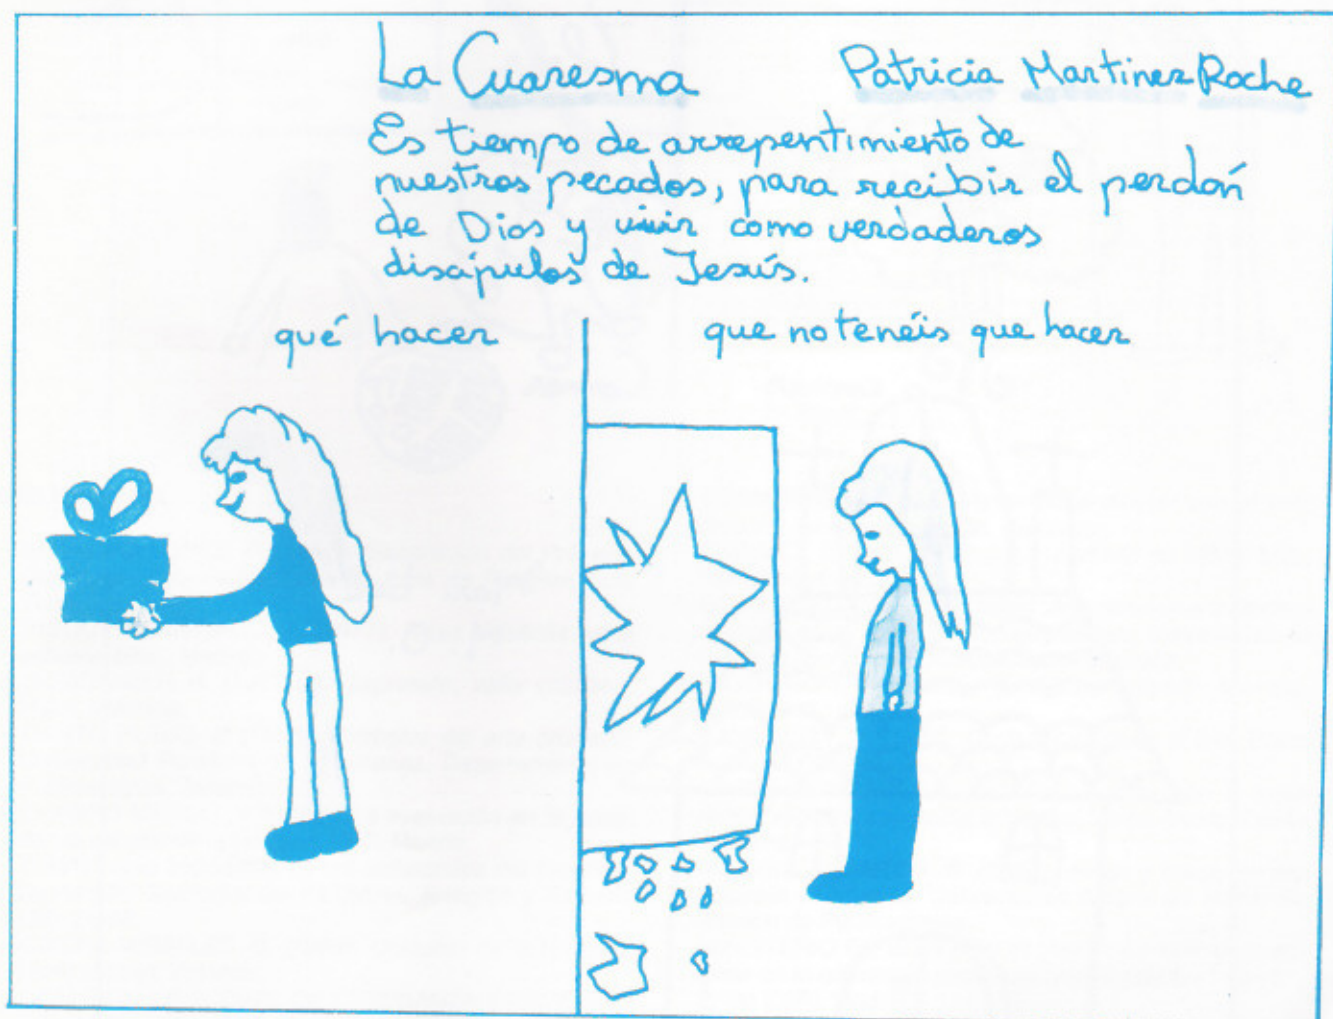 La Cuaresma
Patricia Martinez Roche
Es tiempo de arrepentimiento de
nuestros pecados, para recibir el perdón
de Dios y vivir como verdaderos
discípulos de Jesús.
qué hacer
que no tenéis que hacer